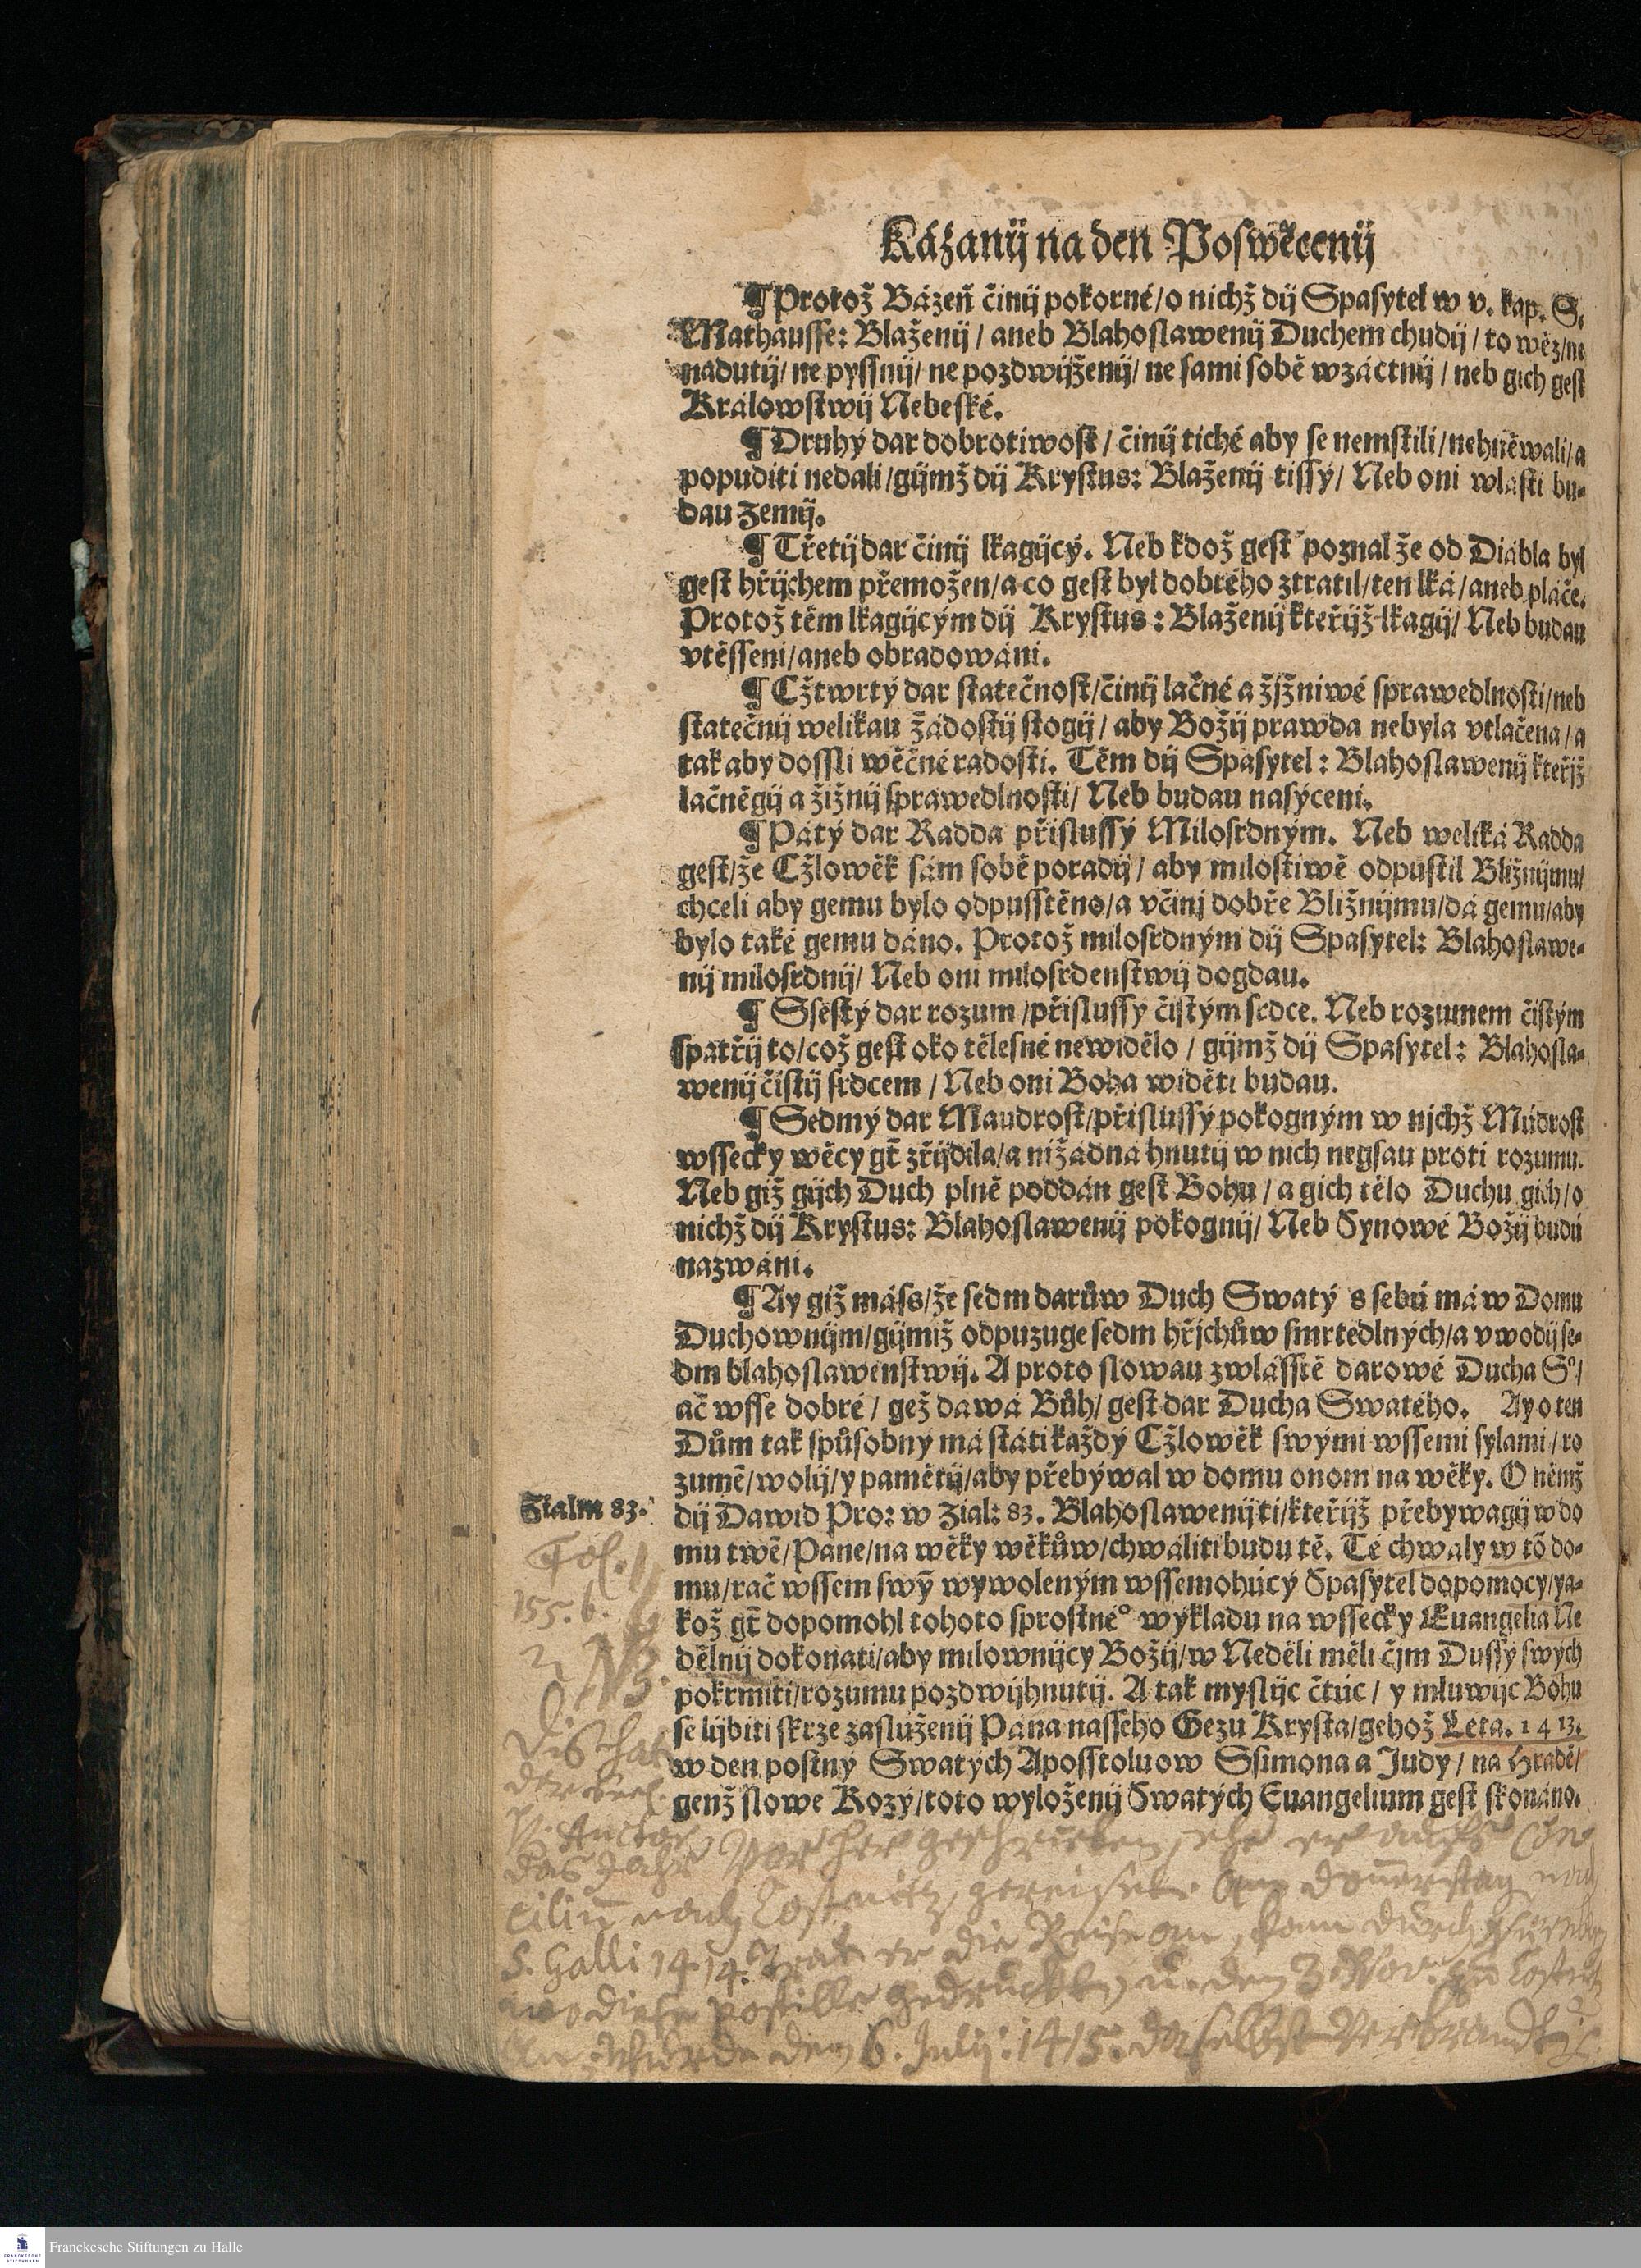 Kázanij na den Poswěcenij
¶ Protož Bázeň činij pokorné/o nichž dij Spasytel w v. kap. S.
Mathausse: Blaženij / aneb Blahoslawenij Duchem chudij / to wěz/ne
nadutij/ ne pyssnij/ ne pozdwiženij/ ne sami sobě wzáctnij / neb gich gest
Králowstwij Nebeské.
¶ Druhý dar dobrotiwost / činij tiché aby se nemstili/nehněwali/a
popuditi nedali/gijmž dij Krystus: Blaženij tissý/ Neb oni wlásti bu-
dau Zemij.
¶ Třetij dar činij lkagijcý. Neb kdož gest poznal že od Diábla byl
gest hřijchem přemožen/a co gest byl dobrého ztratil/ten lká/aneb pláče.
Protož těm lkagijcým dij Krystus: Blaženij kteřijž lkagij/ Neb budau
vtěsseni/aneb obradowáni.
¶ Cžtwrtý dar statečnost/činij lačné a žížniwé sprawedlnosti/neb
statečnij welikau žádostij stogij / aby Božij prawda nebyla vtlačena/a
tak aby dossli wěčné radosti. Těm dij Spasytel: Blahoslawenij kteřjž
lačněgij a žižnij sprawedlnosti/ Neb budau nasýceni.
¶ Pátý dar Radda přislussý Milosrdným. Neb weliká Radda
gest/že Cžlowěk sám sobě poradij / aby milostiwě odpustil Bližnijmu/
chceli aby gemu bylo odpusstěno/a včinj dobře Bližnijmu/dá gemu/aby
bylo také gemu dáno. Protož milosrdným dij Spasytel: Blahoslawe-
nij milosrdnij/ Neb oni milosrdenstwij dogdau.
¶ Ssestý dar rozum /přislussý čistým srdce. Neb rozumem čistým
spatřij to/což gest oko tělesné newidělo / gijmž dij Spasytel: Blahosla-
wenij čistij srdcem / Neb oni Boha widěti budau.
¶ Sedmý dar Maudrost/přislussý pokogným w njchž Múdrost
wssecky wěcy gt̄ zřijdila/a nižádná hnutij w nich negsau proti rozumu.
Neb giž gijch Duch plně poddán gest Bohu / a gich tělo Duchu gich/o
nichž dij Krystus: Blahoslawenij pokognij/ Neb Synowé Božij budú
nazwáni.
¶ Ay giž máss/že sedm darůw Duch Swatý s sebú má w Domu
Duchownijm/gijmiž odpuzuge sedm hřjchůw smrtedlných/a vwodij se-
dm blahoslawenstwij. A proto slowau zwlásstě darowé Ducha S°/
ač wsse dobré / gež dáwá Bůh/ gest dar Ducha Swatého. Ay o ten
Dům tak spůsobný má státi každý Cžlowěk swými wssemi sylami / ro
zumē/wolij/y pamětij/aby přebýwal w domu onom na wěky. O němž
Žialm 83.
dij Dawid Pro: w Žial: 83. Blahoslawenij ti/kteřijž přebywagij w do
mu twē/Pane/na wěky wěkůw/chwáliti budu tě. Té chwály w tō do-
mu/rač wssem swȳ wywoleným wssemohúcý Spasytel dopomocy/ya-
kož gt̄ dopomohl tohoto sprostné° wýkladu na wssecky Euangelia Ne
dělnij dokonati/aby milownijcy Božij/w Neděli měli čjm Dussý swých
pokrmiti/rozumu pozdwijhnutij. A tak myslijc čtúc / y mluwijc Bohu
se lijbiti skrze zaslúženij Pána nasseho Gezu Krysta/gehož Léta. 1413.
w den postný Swatých Aposstoluow Ssimona a Judy / na Hradě/
genž slowe Kozý/toto wyloženij Swatých Euangelium gest skonáno.
Fol.
155. b.
NB.
Dis hat
der seel.
H. Auctor
das Jahr vor her geschrieben, ehe er aufs Con
cilium nach Costnitz gereiset. Am donnerstag nach
S. Galli 1414. trat er die Reise an, kam durch Nürnberg
wo diese postille gedruckt, u. den 3. Nov. zu Costnitz
an. Wurde den 6. Julij: 1415. daselbst verbrandt
Franckesche Stiftungen zu Halle